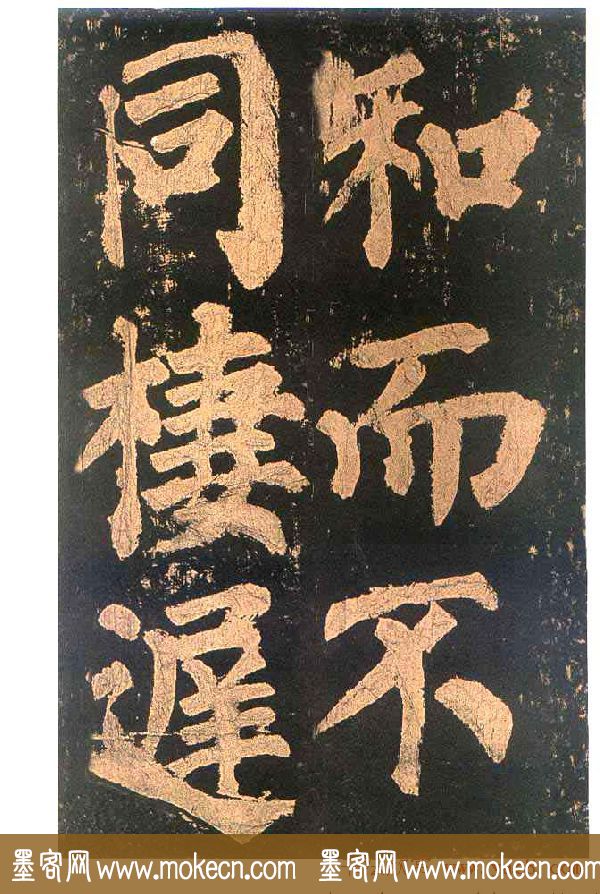 和而不
同棲遲
墨客网 www.mokecn.com 墨客网 www.mokecn.com